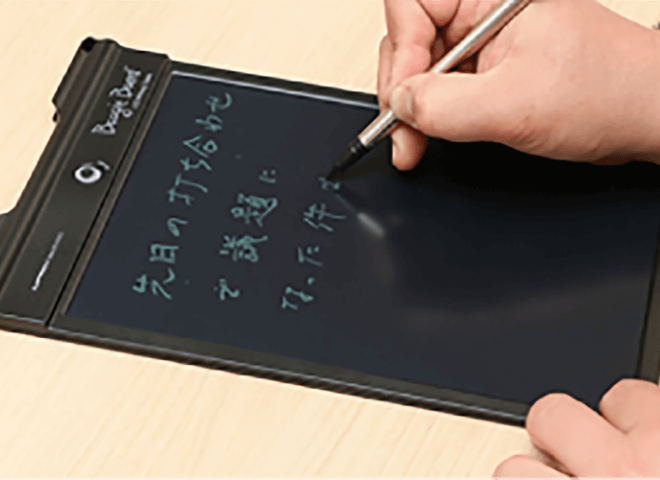 Boogie Board
先日の打ち合わせ
で議題に
なった件は